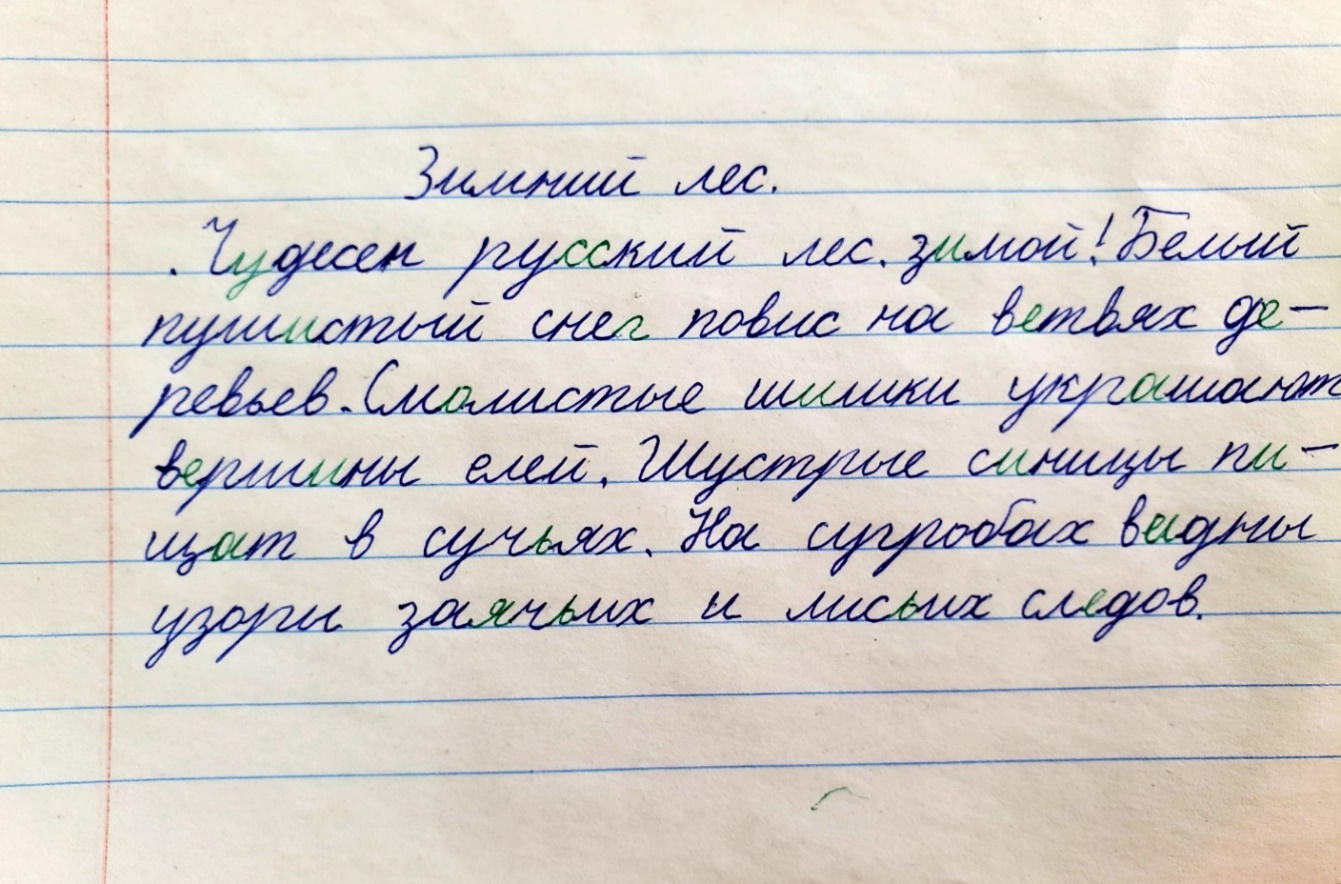 Зимний лес.
Чудесен русский лес зимой! Белый
пушистый снег повис на ветвях де-
ревьев. Смолистые шишки украшают
вершины елей. Шустрые синицы пи-
щат в сучьях. На сугробах видны
узоры заячьих и лисьих следов.